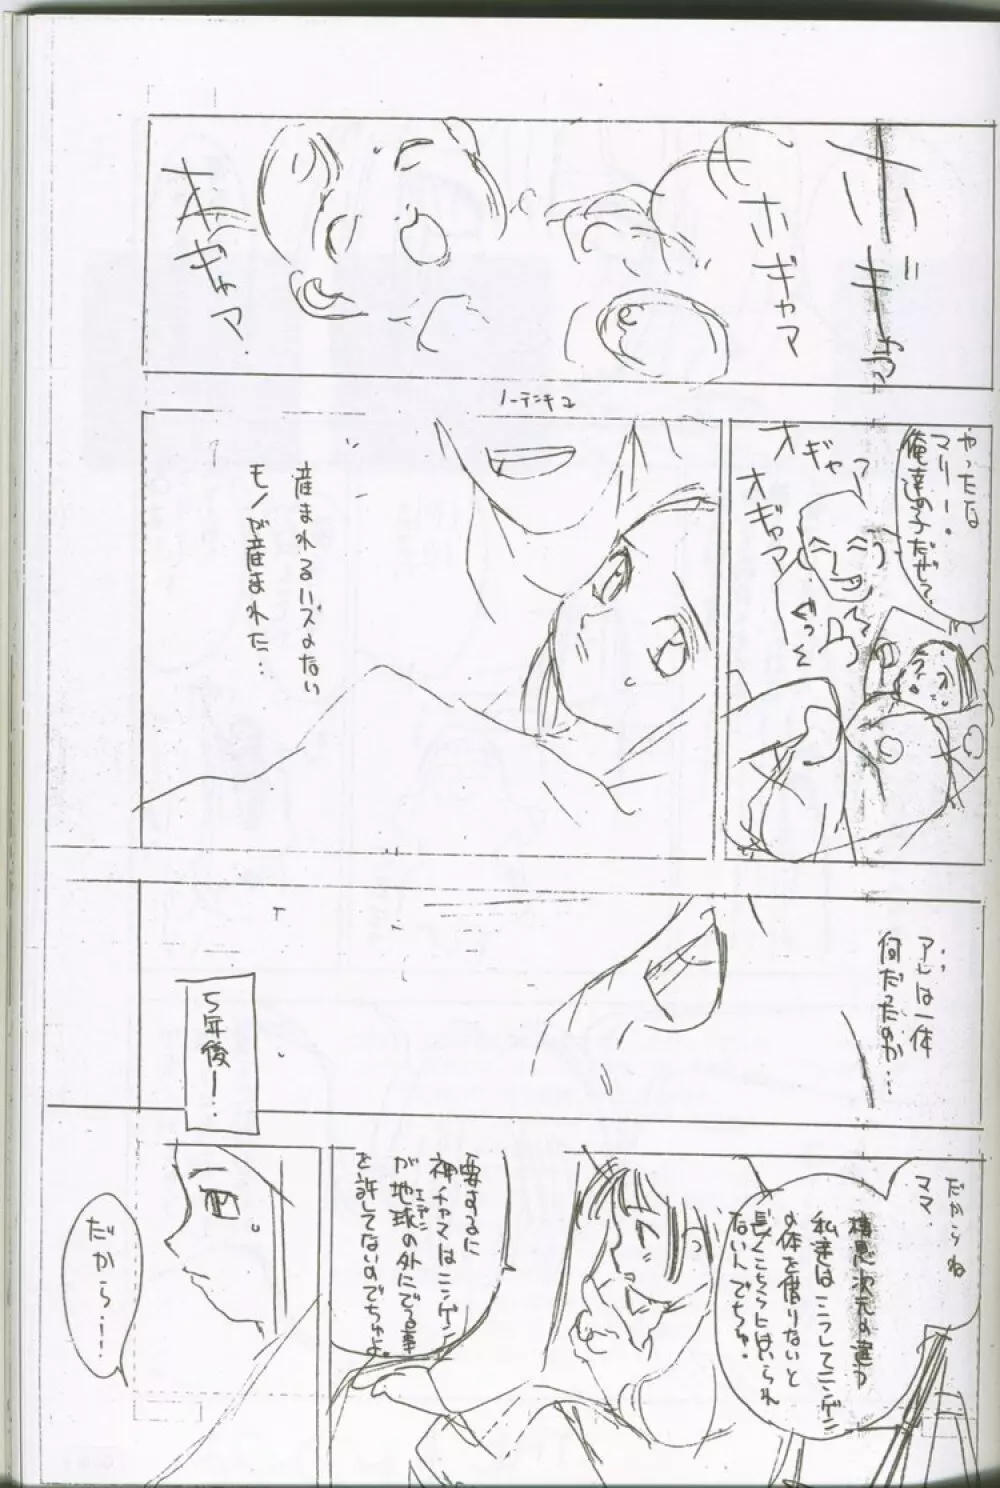 ホギャァ
ホギャマ
オギャマ
ノーテンキュ
やったな
マリー。
俺達の子だぜて。
オギャマ
オギャマ
ぐっ
産まれるハズのない
モノが産まれた…
アレは一体
何だったのか…
5年後ー！
だからね
ママ
次元の違う
私達はこうしてニンゲン
の体を借りないと
長くこっちにはいられ
ないんでちゅ。
要するに
神チャマはニンゲン
が地球の外にでる事
エデン
を許してないのでちゅよ。
だから…！